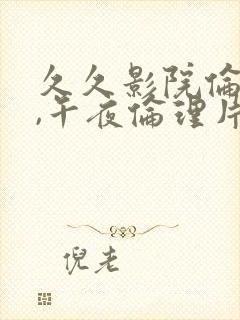 久久影院倫
,午夜倫理片
倪老